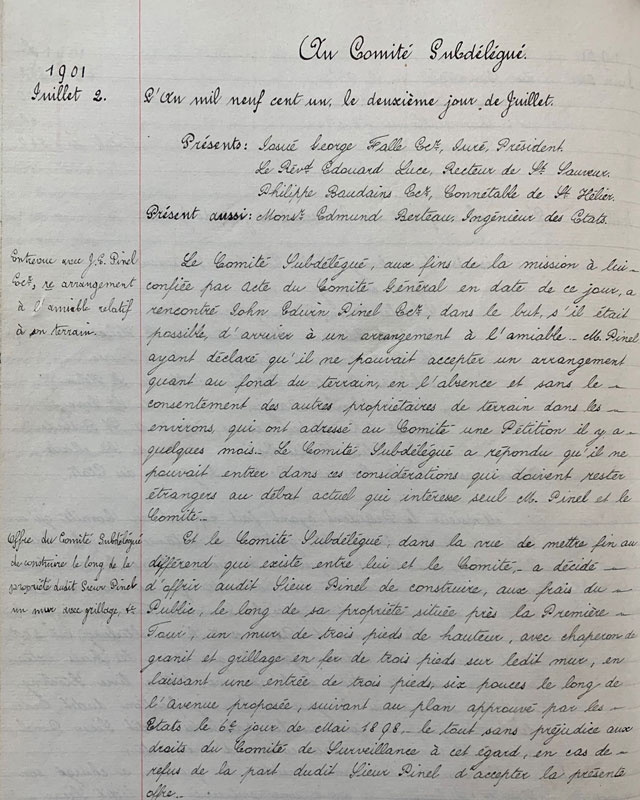 Au Comité Subdélégué.
1901
Juillet 2.
L'An mil neuf cent un, le deuxième jour de Juillet.
Présents: Josué George Falle Ecr, Juré, Président.
Le Révd Edouard Luce, Recteur de St Sauveur.
Philippe Baudains Ecr, Connétable de St Hélier.
Présent aussi: Monsr Edmund Berteau, Ingénieur des Etats.
Entrevue avec J.E. Pinel
Ecr, re arrangement
à l'amiable relatif
à son terrain.
Le Comité Subdélégué, aux fins de la mission à lui
confiée par Acte du Comité Général en date de ce jour, a
rencontré John Edwin Pinel Ecr, dans le but, s'il était
possible, d'arriver à un arrangement à l'amiable. M. Pinel
ayant déclaré qu'il ne pouvait accepter un arrangement
quant au fond du terrain, en l'absence et sans le
consentement des autres propriétaires de terrain dans les
environs, qui ont adressé au Comité une Pétition il y a
quelques mois. Le Comité Subdélégué a répondu qu'il ne
pouvait entrer dans ces considérations qui doivent rester
étrangers au débat actuel qui intéresse seul M. Pinel et le
Comité.
Offre du Comité Subdélégué
de construire le long de la
propriété dudit Sieur Pinel
un mur avec grillage, &c
Et le Comité Subdélégué dans la vue de mettre fin au
différend qui existe entre lui et le Comité, a décidé
d'offrir audit Sieur Pinel de construire, aux frais du
Public, le long de sa propriété située près la Première
Tour, un mur de trois pieds de hauteur, avec chaperon de
granit et grillage en fer de trois pieds sur ledit mur, en
laissant une entrée de trois pieds, six pouces le long de
l'avenue proposée, suivant au plan approuvé par les
Etats le 6e jour de Mai 1898 le tout sans préjudice aux
droits du Comité de Surveillance à cet égard, en cas de
refus de la part dudit Sieur Pinel d'accepter la présente
offre.